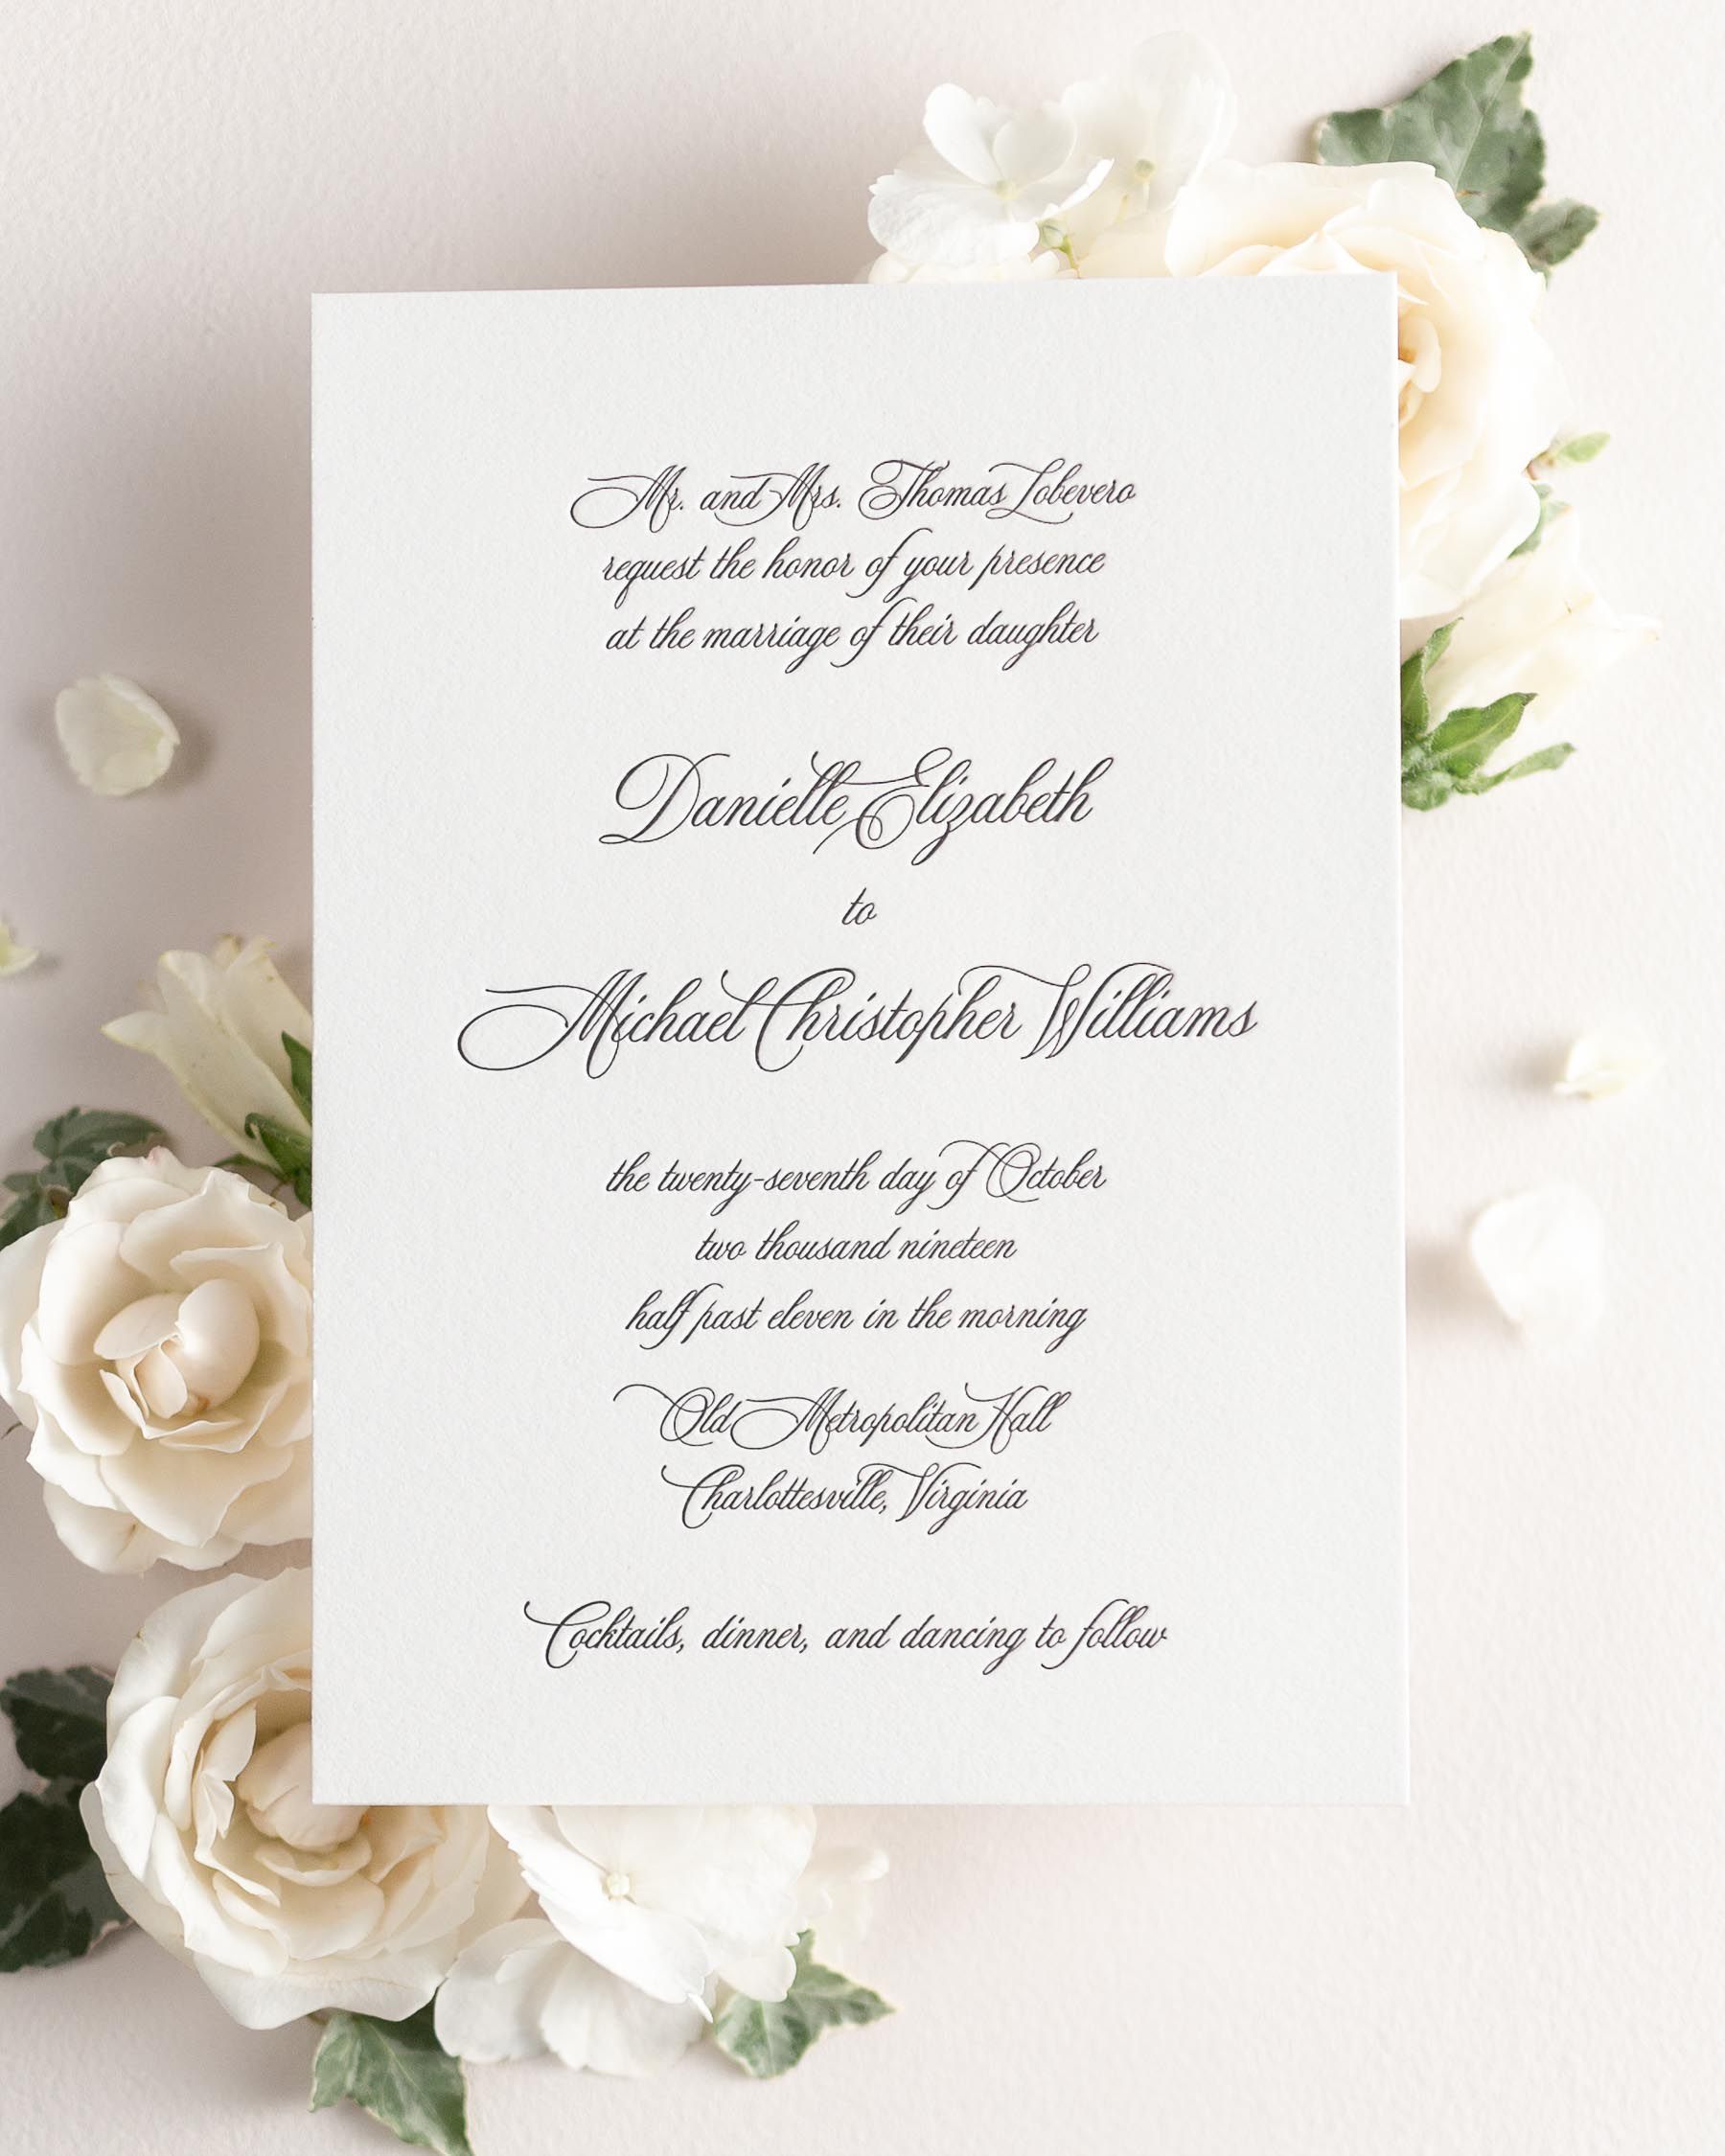 Mr. and Mrs. Thomas Lobevero
request the honor of your presence
at the marriage of their daughter
Danielle Elizabeth
to
Michael Christopher Williams
the twenty-seventh day of October
two thousand nineteen
half past eleven in the morning
Old Metropolitan Hall
Charlottesville, Virginia
Cocktails, dinner, and dancing to follow